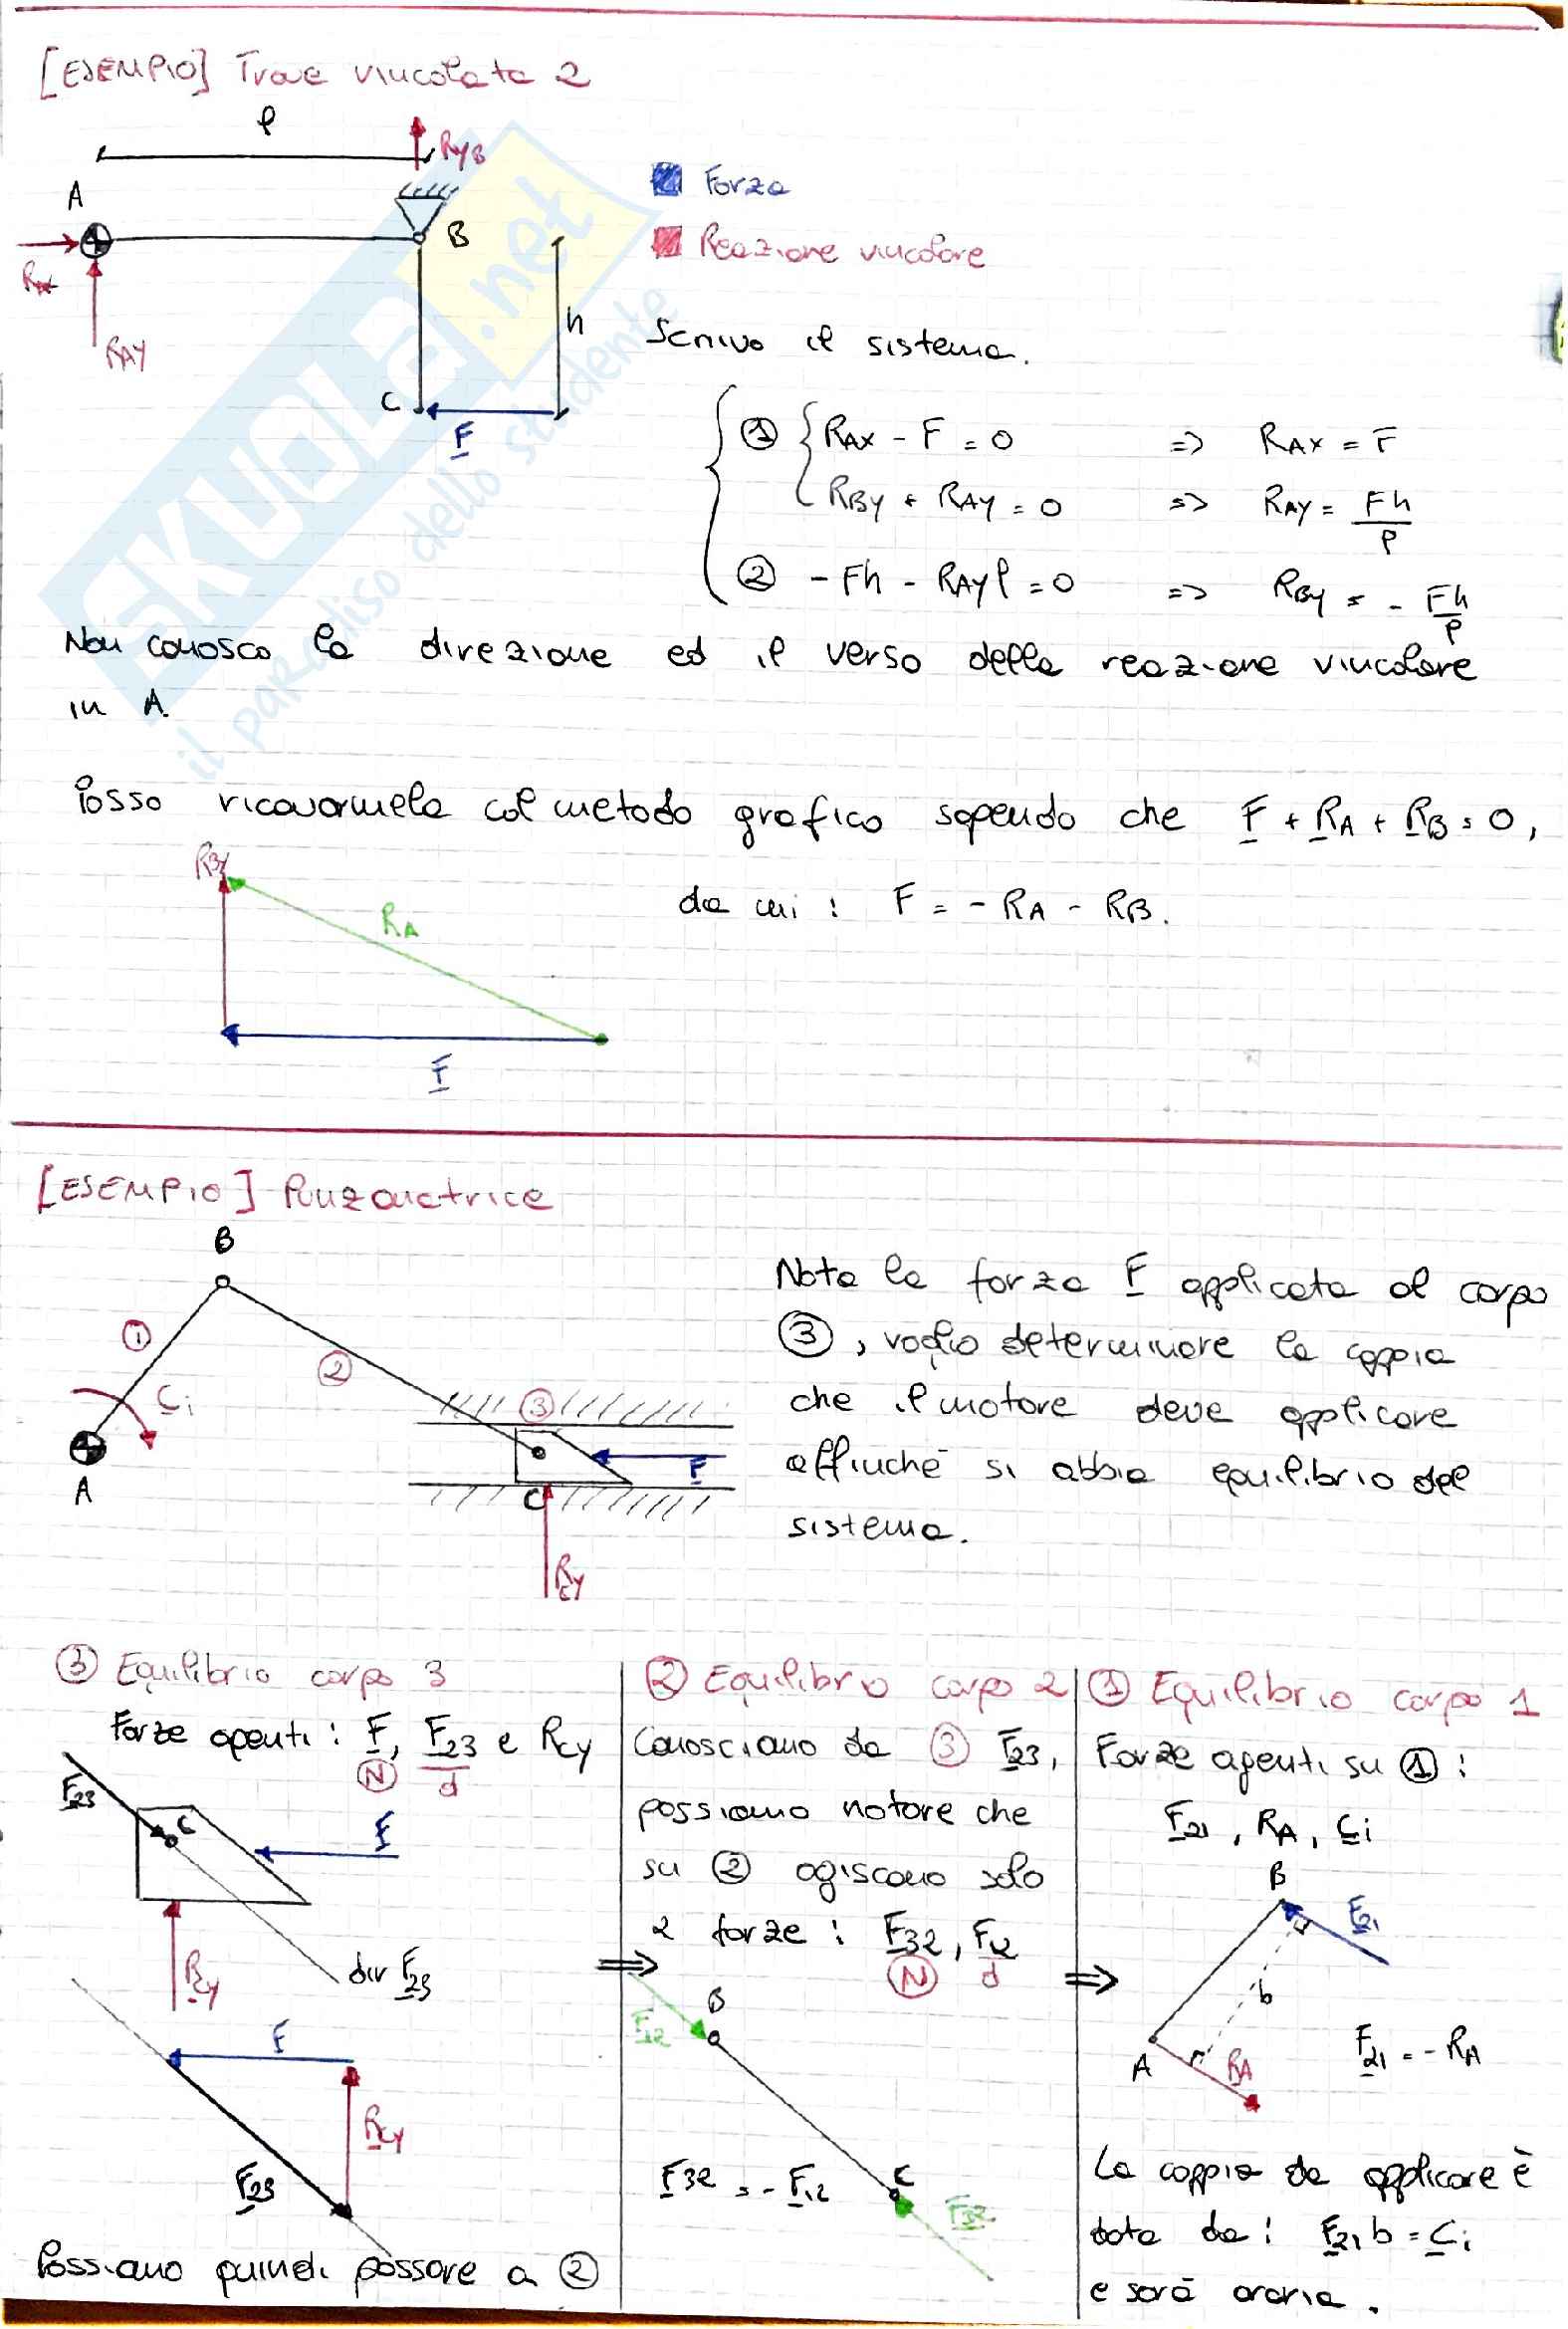 [ESEMPIO] Trave vincolata 2
l
RyB
A
B
RAx
RAY
h
C
F
Forza
Reazione vincolare
Scrivo il sistema.
① { RAX - F = 0 => RAX = F
RBY + RAY = 0 => RAY = Fh/l
② - Fh - RAY l = 0 => RBY = - Fh/l
Non conosco la direzione ed il verso della reazione vincolare
in A.
Posso ricavarmela col metodo grafico sapendo che F + RA + RB = 0,
da cui : F = - RA - RB.
RBY
RA
F
[ESEMPIO] Punzonatrice
B
①
②
Ci
③
A
C
F
RCY
Nota la forza F applicata al corpo
③, voglio determinare la coppia
che il motore deve applicare
affinché si abbia equilibrio del
sistema.
③ Equilibrio corpo 3
Forze agenti : F, F23 e RCY
N d
F23
C
F
RCY
dir F23
F
RCY
F23
Possiamo quindi passare a ②
② Equilibrio corpo 2
Conosciamo da ③ F23,
possiamo notare che
su ② agiscono solo
2 forze : F32, F12
N d
=>
F12
B
F32 = - F12
C
F32
① Equilibrio corpo 1
Forze agenti su ① :
F21, RA, Ci
=>
B
F21
b
A
RA
F21 = - RA
La coppia da applicare è
data da : F21 b = Ci
e sarà oraria.
SKUOLA.net
il paradiso dello studente